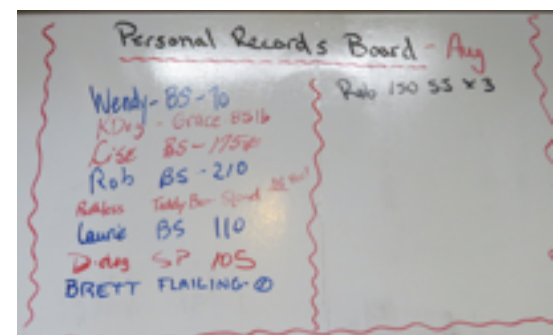 Personal Records Board - Aug
Wendy - BS - 70
KDog - Grace 85lb
Lise BS - 175#
Rob BS - 210
Ruthless Teddy Bear Stand
Laurie BS 110
D-dog SP 105
BRETT FLAILING -
Rob 150 SS x 3